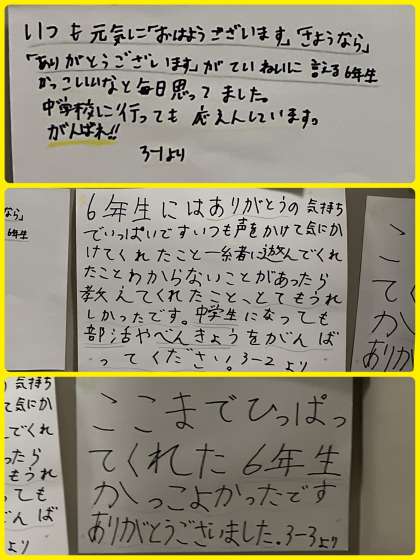 いつも元気に「おはようございます」「さようなら」
「ありがとうございます」がていねいに言える6年生
かっこいいなと毎日思ってました。
中学校に行っても応えんしています。
がんばれ!!
3-1より
なら」
6年生
6年生にはありがとうの気持ち
でいっぱいですいつも声をかけて気にか
けてくれたこと一緒に遊んでくれ
たことわからないことがあったら
教えてくれたこと、とてもうれ
しかったです。中学生になっても
部活やべんきょうをがんば
ってください!3-2より
こ
てく
か
ありが
気持ち
て気にか
でくれ
ったら
もうれ
っても
がんば
より
ここまでひっぱっ
てくれた6年生
かっこよかったです
ありがとうございました.3-3より